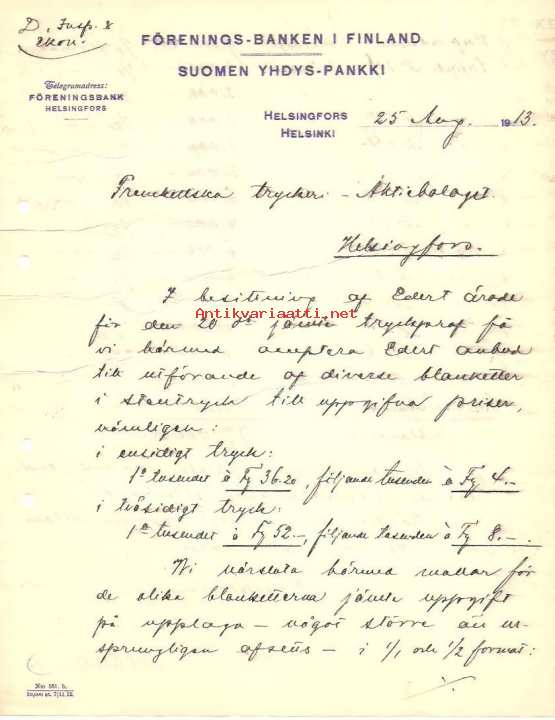 D. Insp. &
ekon.
FÖRENINGS-BANKEN I FINLAND
SUOMEN YHDYS-PANKKI
Telegramadress:
FÖRENINGSBANK
HELSINGFORS
HELSINGFORS
HELSINKI
25 Aug. 1913.
Frenckellska tryckeri-Aktiebolaget.
Helsingfors.
Antikvariaatti.net
I besittning af Edert ärade
för den 20 ds jämte tryckprof få
vi härmed acceptera Edert anbud
till utförande af diverse blanketter
i stentryck till uppgifna priser,
nämligen:
i ensidigt tryck:
1a tusendet à Fy 36.20, följande tusenden à Fy 4.-
i tvåsidigt tryck:
1a tusendet à Fy 52.-, följande tusenden à Fy 8.-.
Vi närsluta härmed mallar för
de olika blanketterna jämte uppgift
på upplaga - något större än ur-
sprungligen afsetts - i 1/1 och 1/2 format:
./.